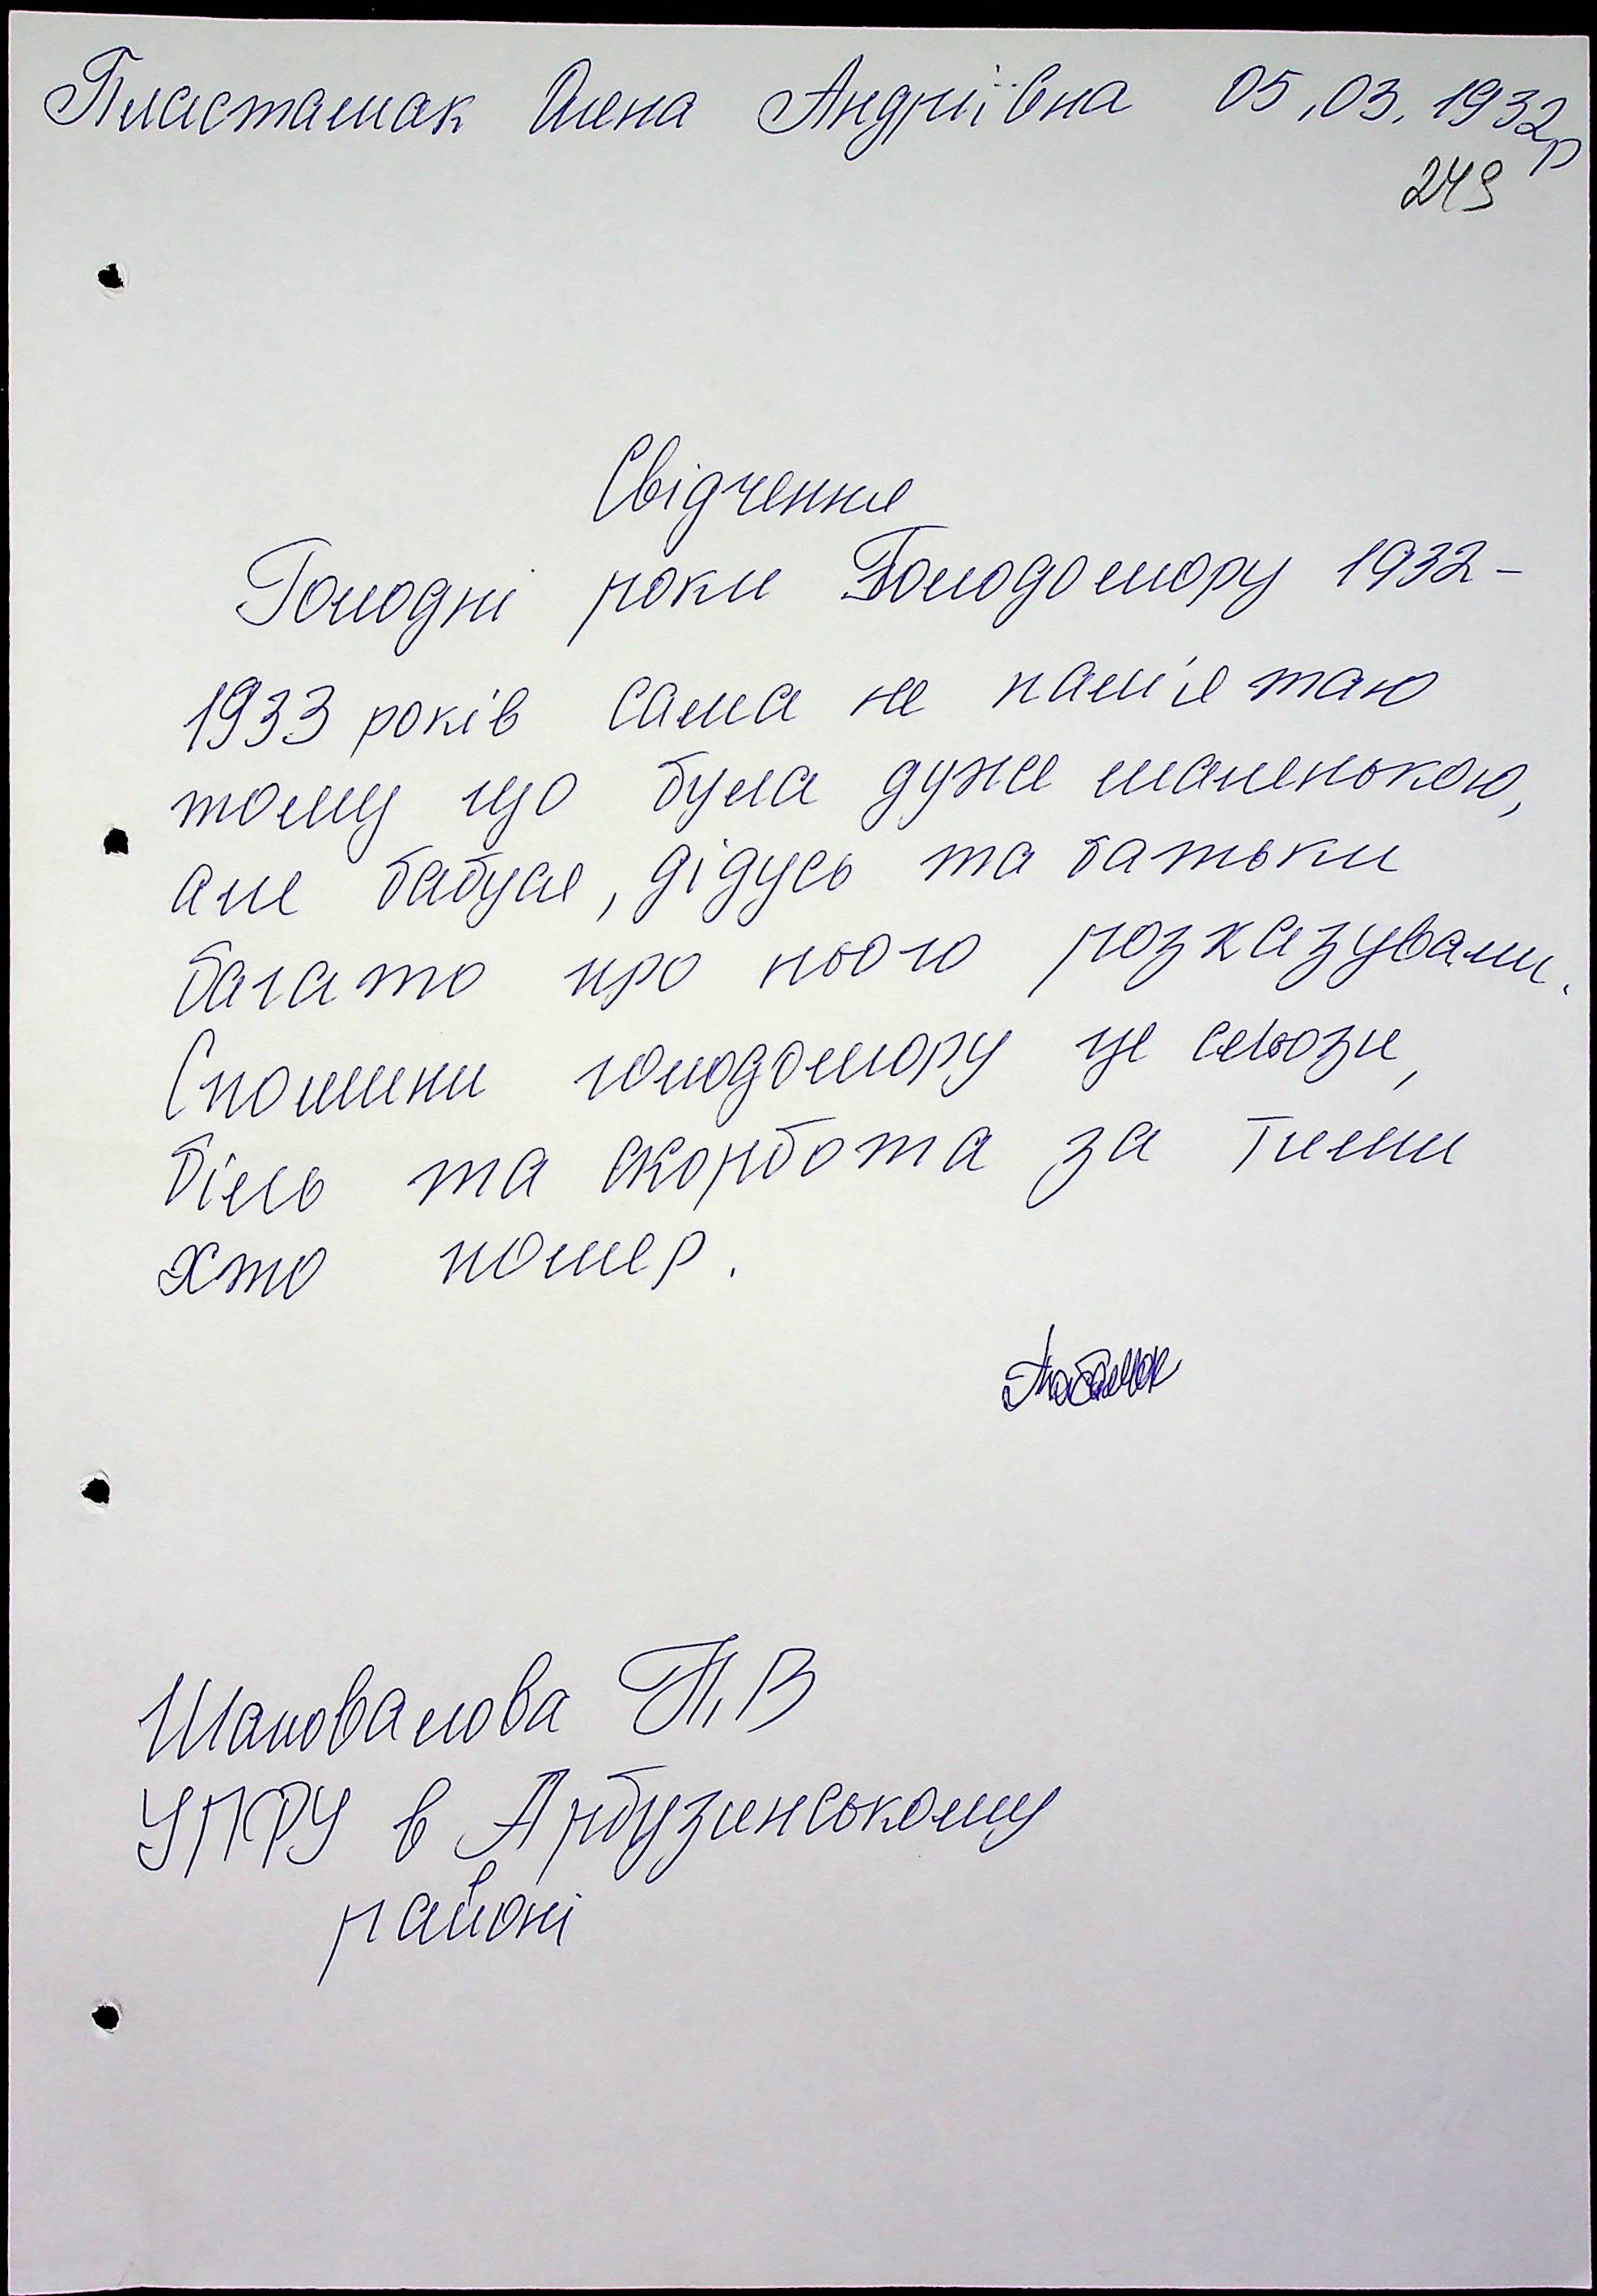 Пласташак Олена Андріївна 05.03.1932р
249
Свідчення
Голодні роки Голодомору 1932-
1933 років сама не пам'ятаю
тому що була дуже маленькою,
але бабуся, дідусь та батьки
багато про нього розказували.
Спомини голодомору це сльози,
біль та скорбота за тими
хто помер.
Шаповалова Т.В
УПФУ в Арбузинському
районі